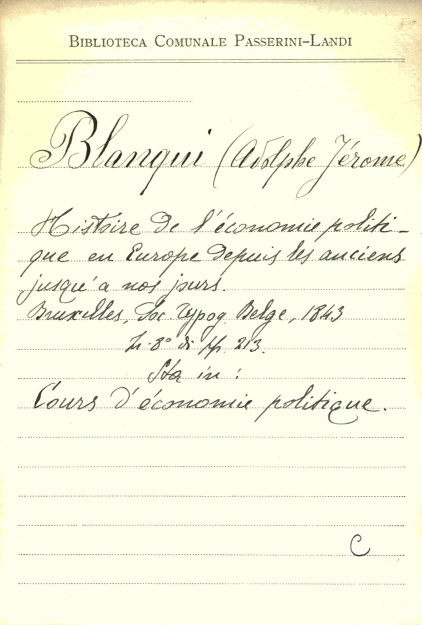 BIBLIOTECA COMUNALE PASSERINI-LANDI
Blanqui (Adolphe Jérome)
Histoire de l'économie politi-
que en Europe depuis les anciens
jusqu'a nos jours.
Bruxelles, Soc Typog. Belge, 1843
In-8° di pp 213.
Sta in:
Cours d'économie politique.
C